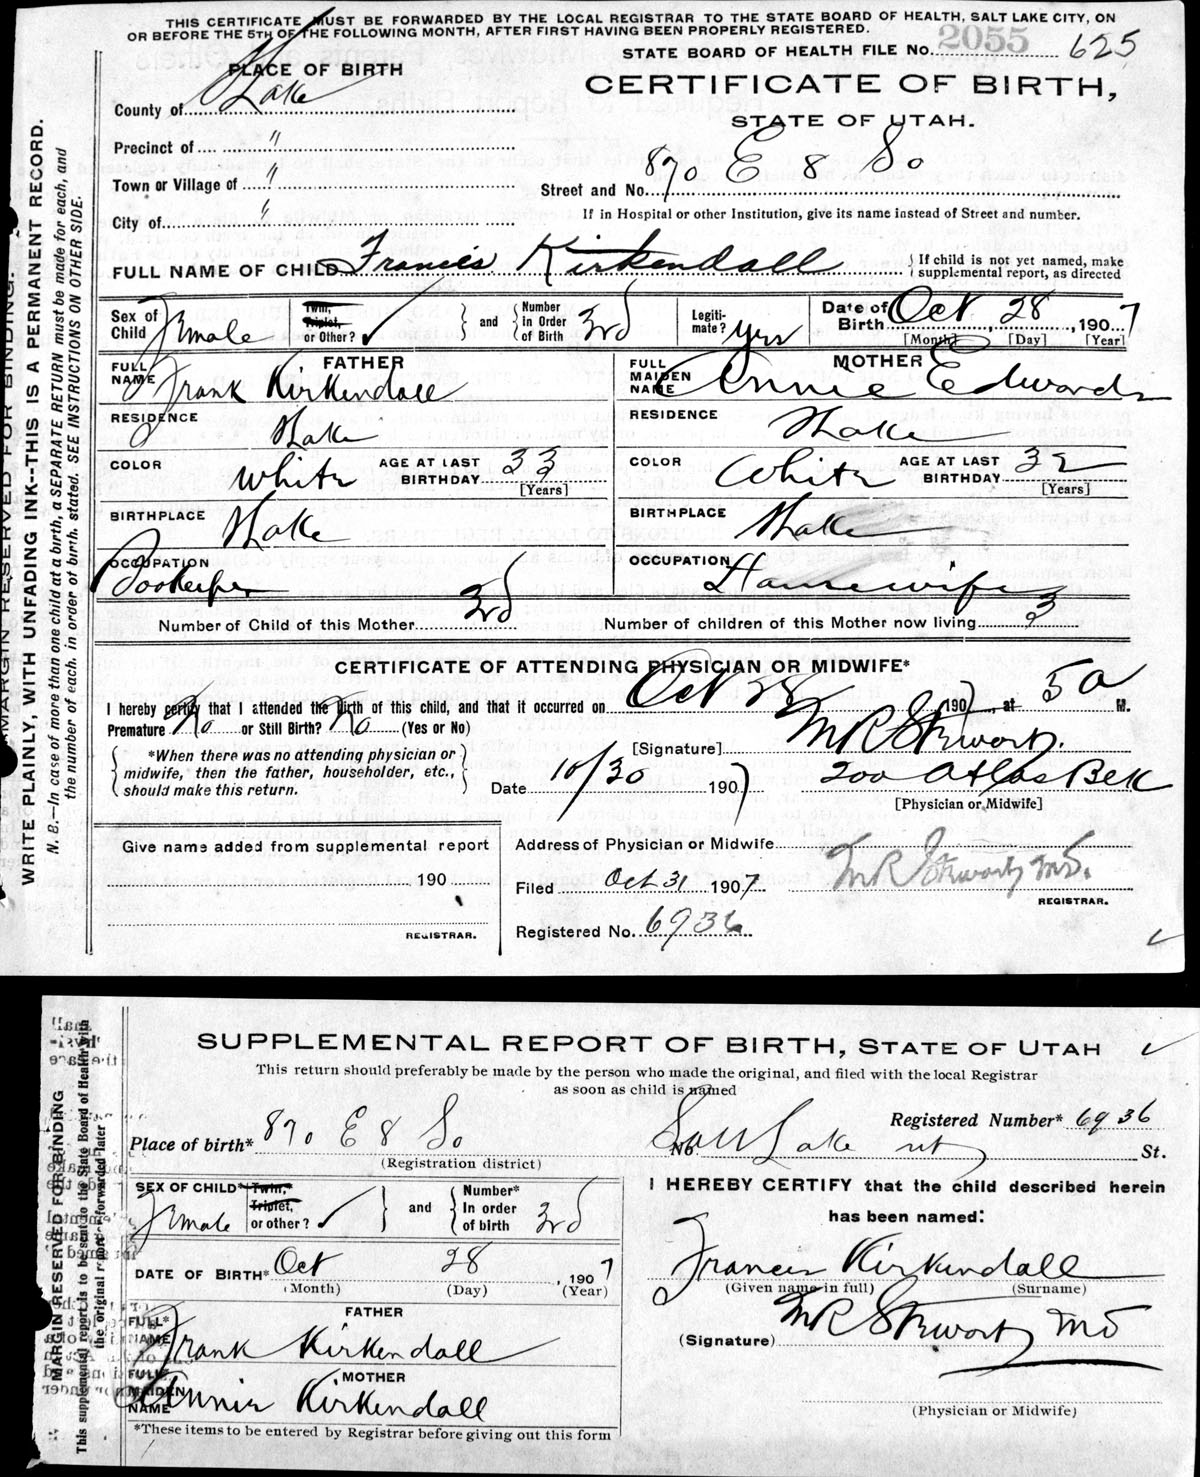 THIS CERTIFICATE MUST BE FORWARDED BY THE LOCAL REGISTRAR TO THE STATE BOARD OF HEALTH, SALT LAKE CITY, ON
OR BEFORE THE 5TH OF THE FOLLOWING MONTH, AFTER FIRST HAVING BEEN PROPERLY REGISTERED.
STATE BOARD OF HEALTH FILE No. 2055 625
PLACE OF BIRTH
CERTIFICATE OF BIRTH,
STATE OF UTAH.
County of SLake
Precinct of "
Town or Village of "
City of "
Street and No. 870 E 8 So
If in Hospital or other Institution, give its name instead of Street and number.
FULL NAME OF CHILD Francis Kirkendall
If child is not yet named, make
supplemental report, as directed
Sex of Child Female
Twin, Triplet, or Other? ✓ and Number in Order of Birth 3rd
Legitimate? Yes
Date of Birth Oct 28, 1907
[Month] [Day] [Year]
FATHER
FULL NAME Frank Kirkendall
MOTHER
FULL MAIDEN NAME Annie Edwards
RESIDENCE SLake
RESIDENCE SLake
COLOR White AGE AT LAST BIRTHDAY 33 [Years]
COLOR White AGE AT LAST BIRTHDAY 32 [Years]
BIRTHPLACE SLake
BIRTHPLACE SLake
OCCUPATION Bookeeper
OCCUPATION Housewife
Number of Child of this Mother 3rd
Number of children of this Mother now living 3
CERTIFICATE OF ATTENDING PHYSICIAN OR MIDWIFE*
I hereby certify that I attended the birth of this child, and that it occurred on Oct 28 1907, at 5 a M.
Premature No or Still Birth? No (Yes or No)
*When there was no attending physician or
midwife, then the father, householder, etc.,
should make this return.
[Signature] M R Stewart.
Date 10/30 1907 200 Atlas Blk
[Physician or Midwife]
Give name added from supplemental report
190
REGISTRAR.
Address of Physician or Midwife
Filed Oct 31 1907 M R Stewart MD.
REGISTRAR.
Registered No. 6936
MARGIN RESERVED FOR BINDING.
WRITE PLAINLY, WITH UNFADING INK--THIS IS A PERMANENT RECORD.
N. B.—In case of more than one child at a birth, a SEPARATE RETURN must be made for each, and
the number of each, in order of birth, stated. SEE INSTRUCTIONS ON OTHER SIDE.
SUPPLEMENTAL REPORT OF BIRTH, STATE OF UTAH
This return should preferably be made by the person who made the original, and filed with the local Registrar
as soon as child is named
Registered Number* 6936
Place of birth* 870 E 8 So No. Salt Lake ut St.
(Registration district)
SEX OF CHILD* Female
Twin,* Triplet, or other? ✓ and Number* In order of birth 3rd
DATE OF BIRTH* Oct 28, 1907
(Month) (Day) (Year)
FATHER
FULL* NAME Frank Kirkendall
MOTHER
FULL* MAIDEN NAME Annie Kirkendall
*These items to be entered by Registrar before giving out this form
I HEREBY CERTIFY that the child described herein
has been named:
Frances Kirkendall
(Given name in full) (Surname)
(Signature) M R Stewart MD
(Physician or Midwife)
MARGIN RESERVED FOR BINDING
This supplemental report is to be sent to the State Board of Health with
the original report or forwarded later